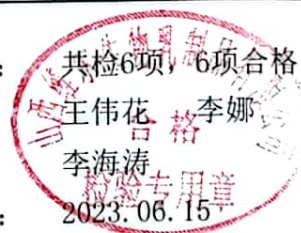 : 共检6项，6项合格
王伟花 李娜
李海涛
: 2023.06.15
合格
检验专用章